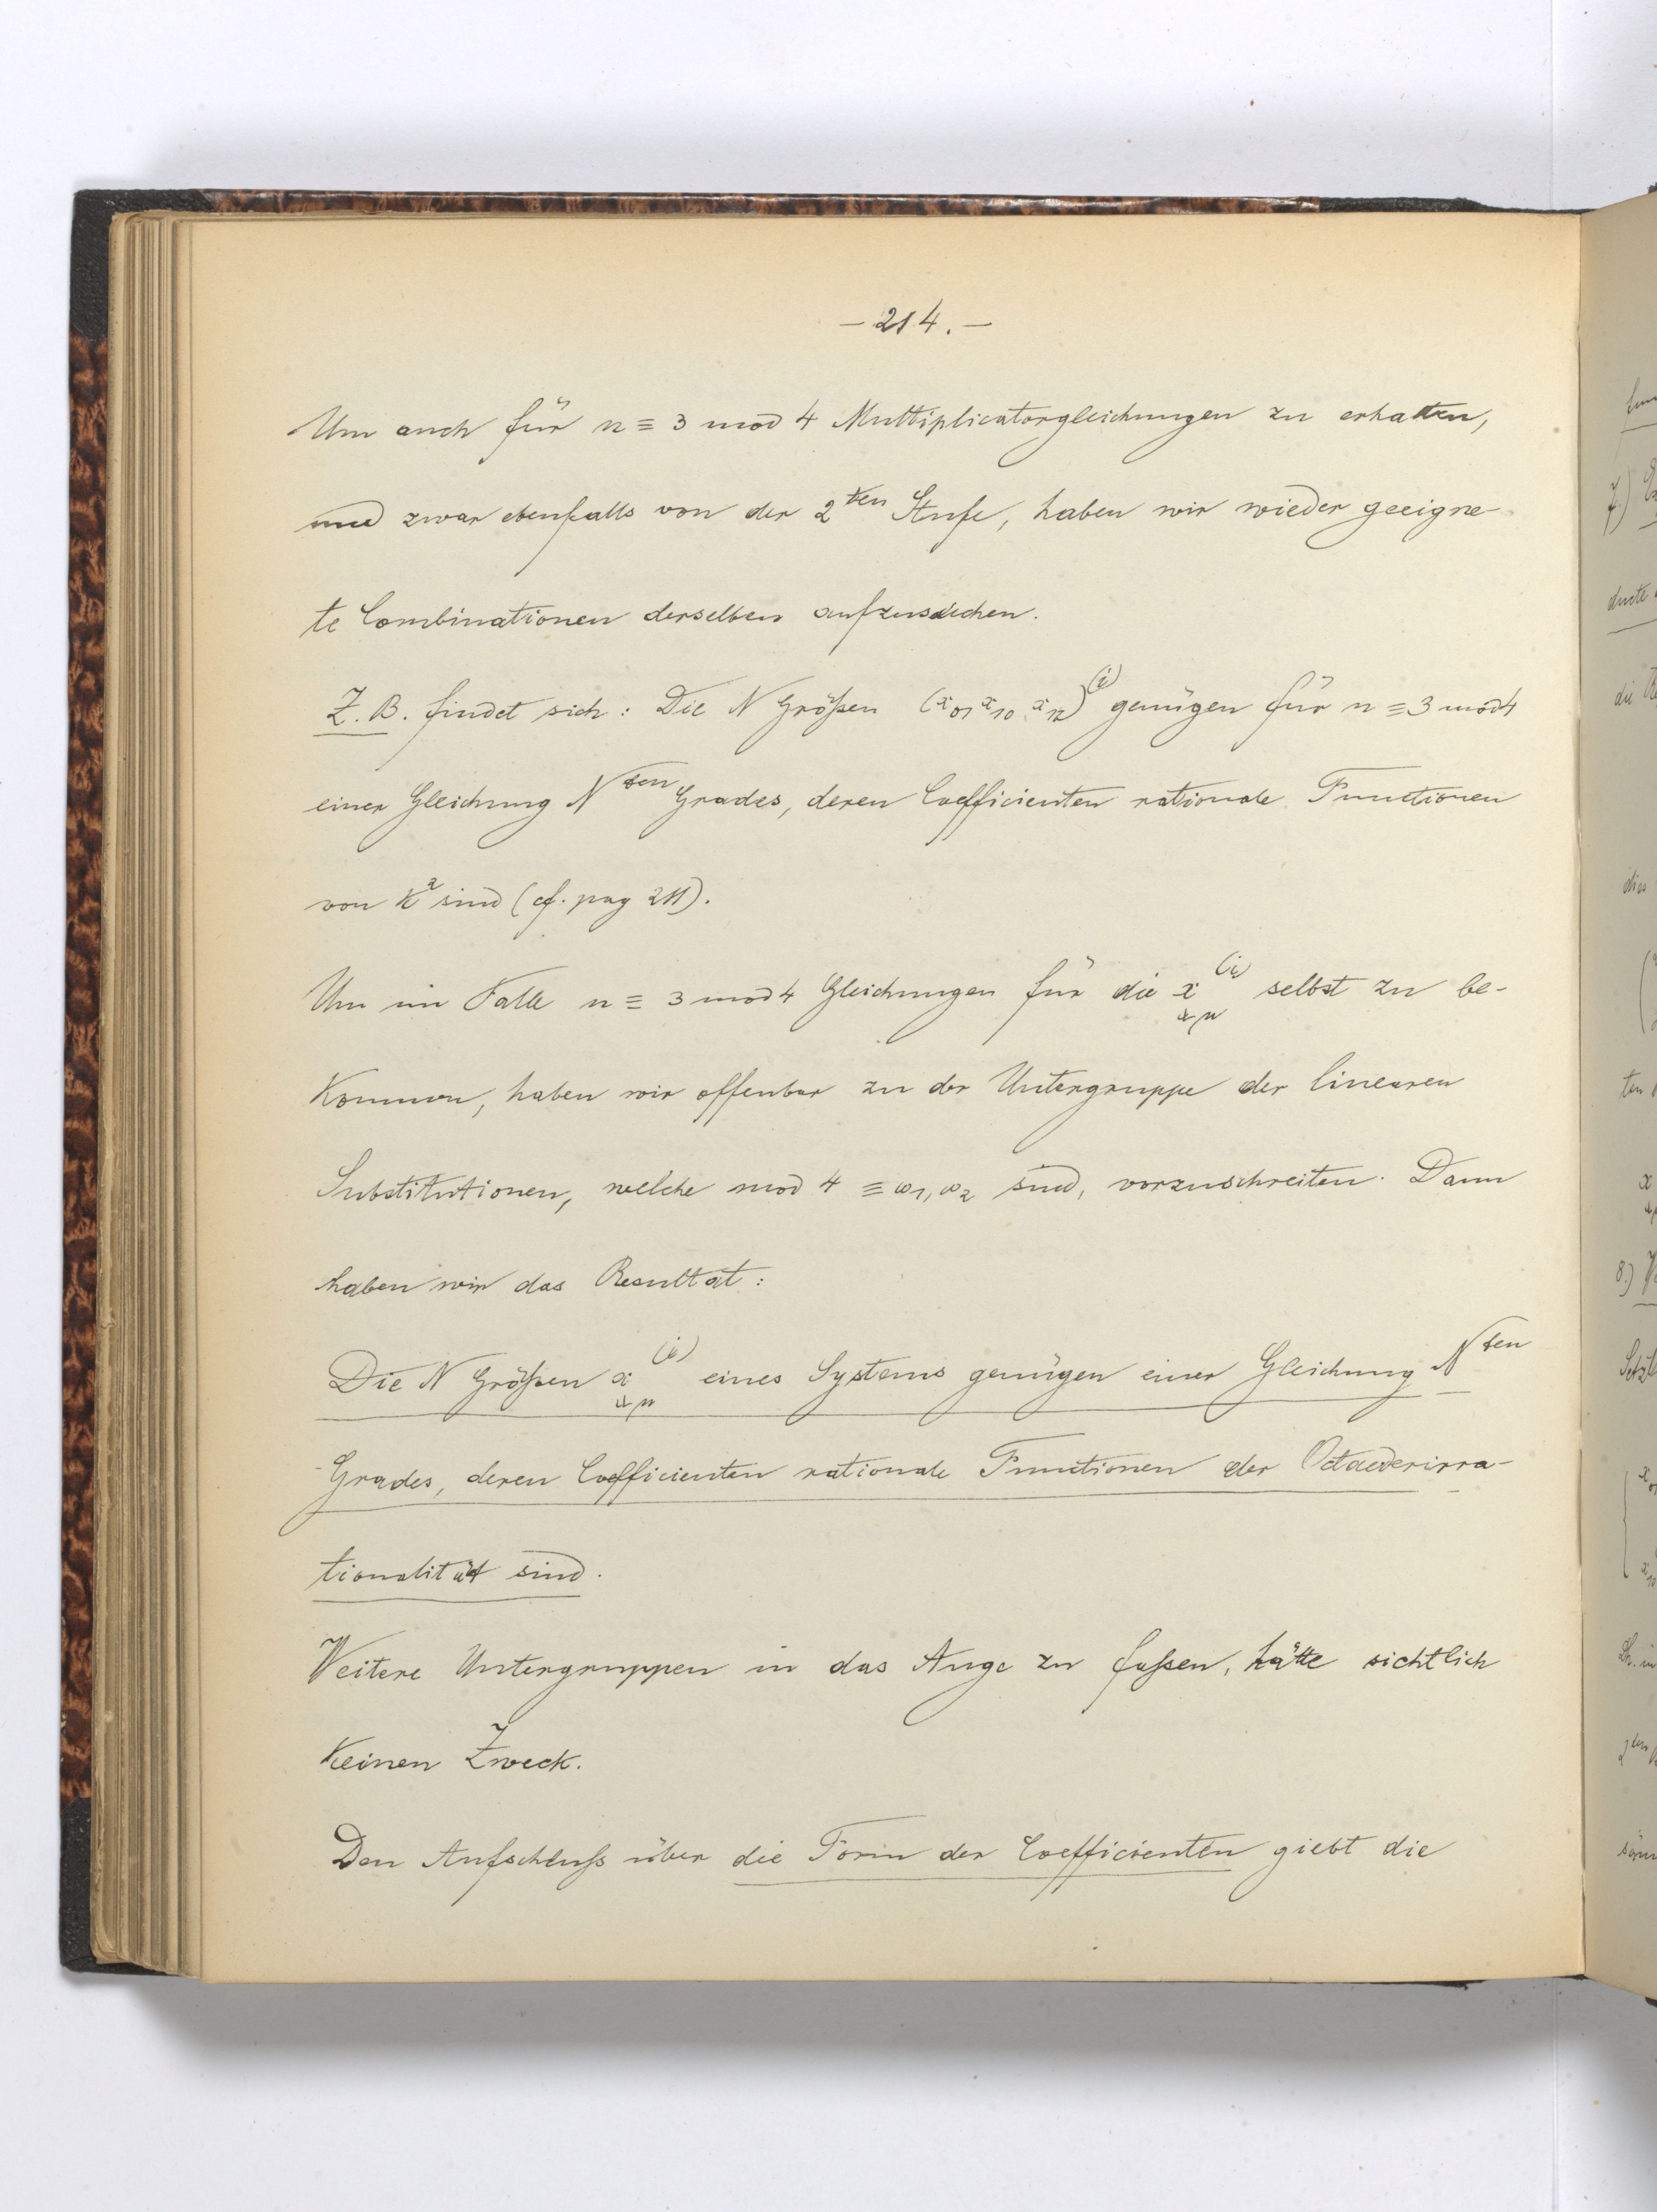 — 214. —
Um auch für n ≡ 3 mod 4 Multiplicatorgleichungen zu erhalten,
und zwar ebenfalls von der 2ten Stufe, haben wir wieder geeigne-
te Combinationen derselben aufzusuchen.
Z. B. findet sich: Die N Größen (x₀₁ x₁₀ x₁₂)⁽ⁱ⁾ genügen für n ≡ 3 mod 4
einer Gleichung Nten Grades, deren Coefficienten rationale Functionen
von k² sind (cf. pag 211).
Um im Falle n ≡ 3 mod 4 Gleichungen für die x⁽ⁱ⁾ selbst zu be-
kommen, haben wir offenbar zu der Untergruppe der linearen
Substitutionen, welche mod 4 ≡ ω₁, ω₂ sind, vorzuschreiten. Dann
haben wir das Resultat:
Die N Größen x⁽ⁱ⁾ eines Systems genügen einer Gleichung Nten
Grades, deren Coefficienten rationale Functionen der Octaederirra-
tionalität sind.
Weitere Untergruppen in das Auge zu faßen, hätte sichtlich
keinen Zweck.
Den Aufschluß über die Form der Coefficienten giebt die